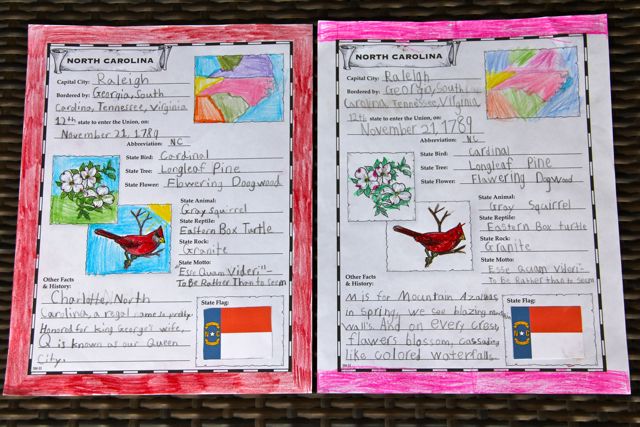 NORTH CAROLINA
Capital City: Raleigh
Bordered by: Georgia, South
Carolina, Tennessee, Virginia
12th state to enter the Union, on:
November 21, 1789
Abbreviation: NC
State Bird: Cardinal
State Tree: Longleaf Pine
State Flower: Flowering Doogwood
State Animal:
Gray Squirrel
State Reptile:
Eastern Box Turtle
State Rock:
Granite
State Motto:
"Esse Quam Videri"-
To Be Rather Than to seem
Other Facts
& History:
Charlotte, North
Carolina, a regal name so pretty.
Honored for king George's wife,
Q is known as our Queen
City.
State Flag:
N C
NORTH CAROLINA
Capital City: Raleigh
Bordered by: Georgia, South
Carolina, Tennessee, Virginia
12th state to enter the Union, on:
November 21, 1789
Abbreviation: NC
State Bird: Cardinal
State Tree: Longleaf Pine
State Flower: Flawering Dogwood
State Animal:
Gray Squirrel
State Reptile:
Eastern Box turtle
State Rock:
Granite
State Motto:
Esse Quam Videri-
To Be Rather Than to seem
Other Facts
& History:
M is for Mountain Azaleas
in Spring, we see blazing
walls. And on every crest,
flowers blossom, cascading
Like colored waterfalls.
State Flag:
N C